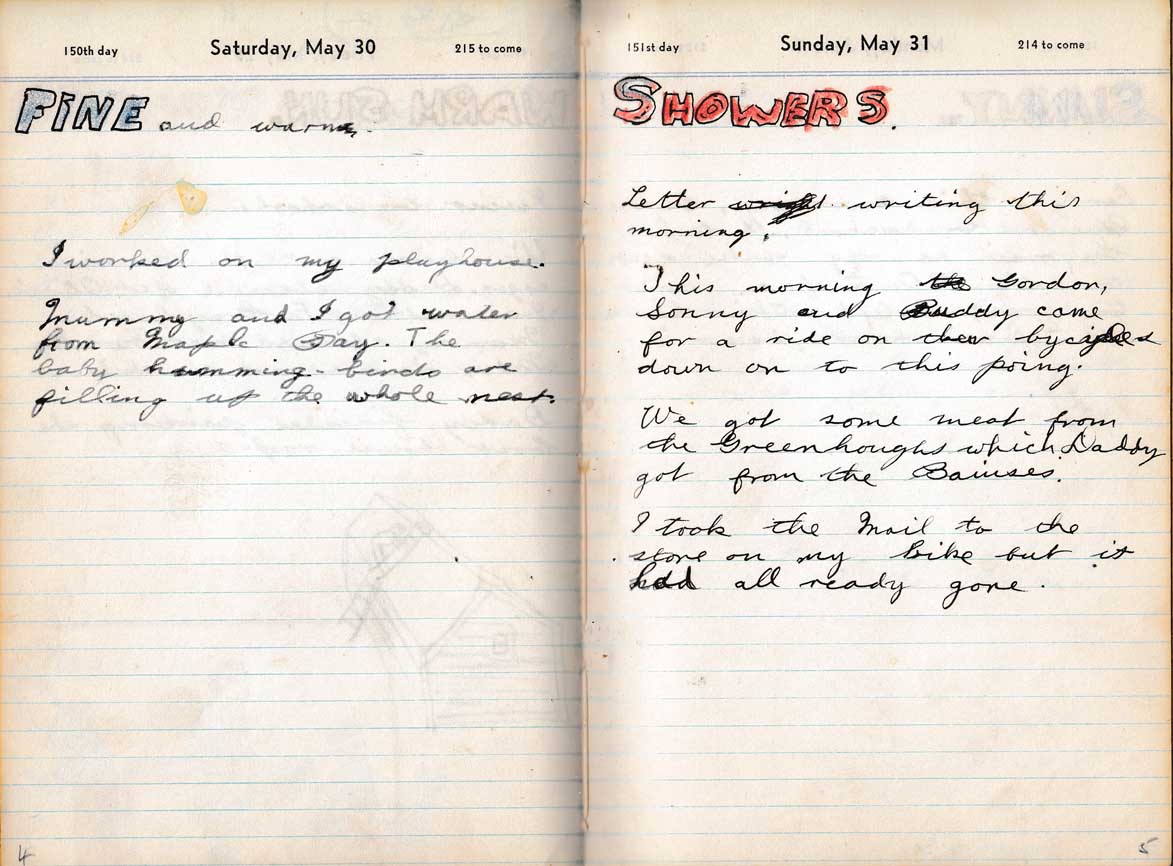 150th day Saturday, May 30 215 to come
FINE and warm.
I worked on my playhouse.
Mummy and I got water
from Maple Bay. The
baby humming-birds are
filling up the whole nest.
4
151st day Sunday, May 31 214 to come
SHOWERS.
Letter writing this
morning.
This morning Gordon,
Sonny and Buddy came
for a ride on their
down on to this poing.
We got some meat from
the Greenhoughs which Daddy
got from the
I took the Mail to the
store on my bike but it
had all ready gone.
5